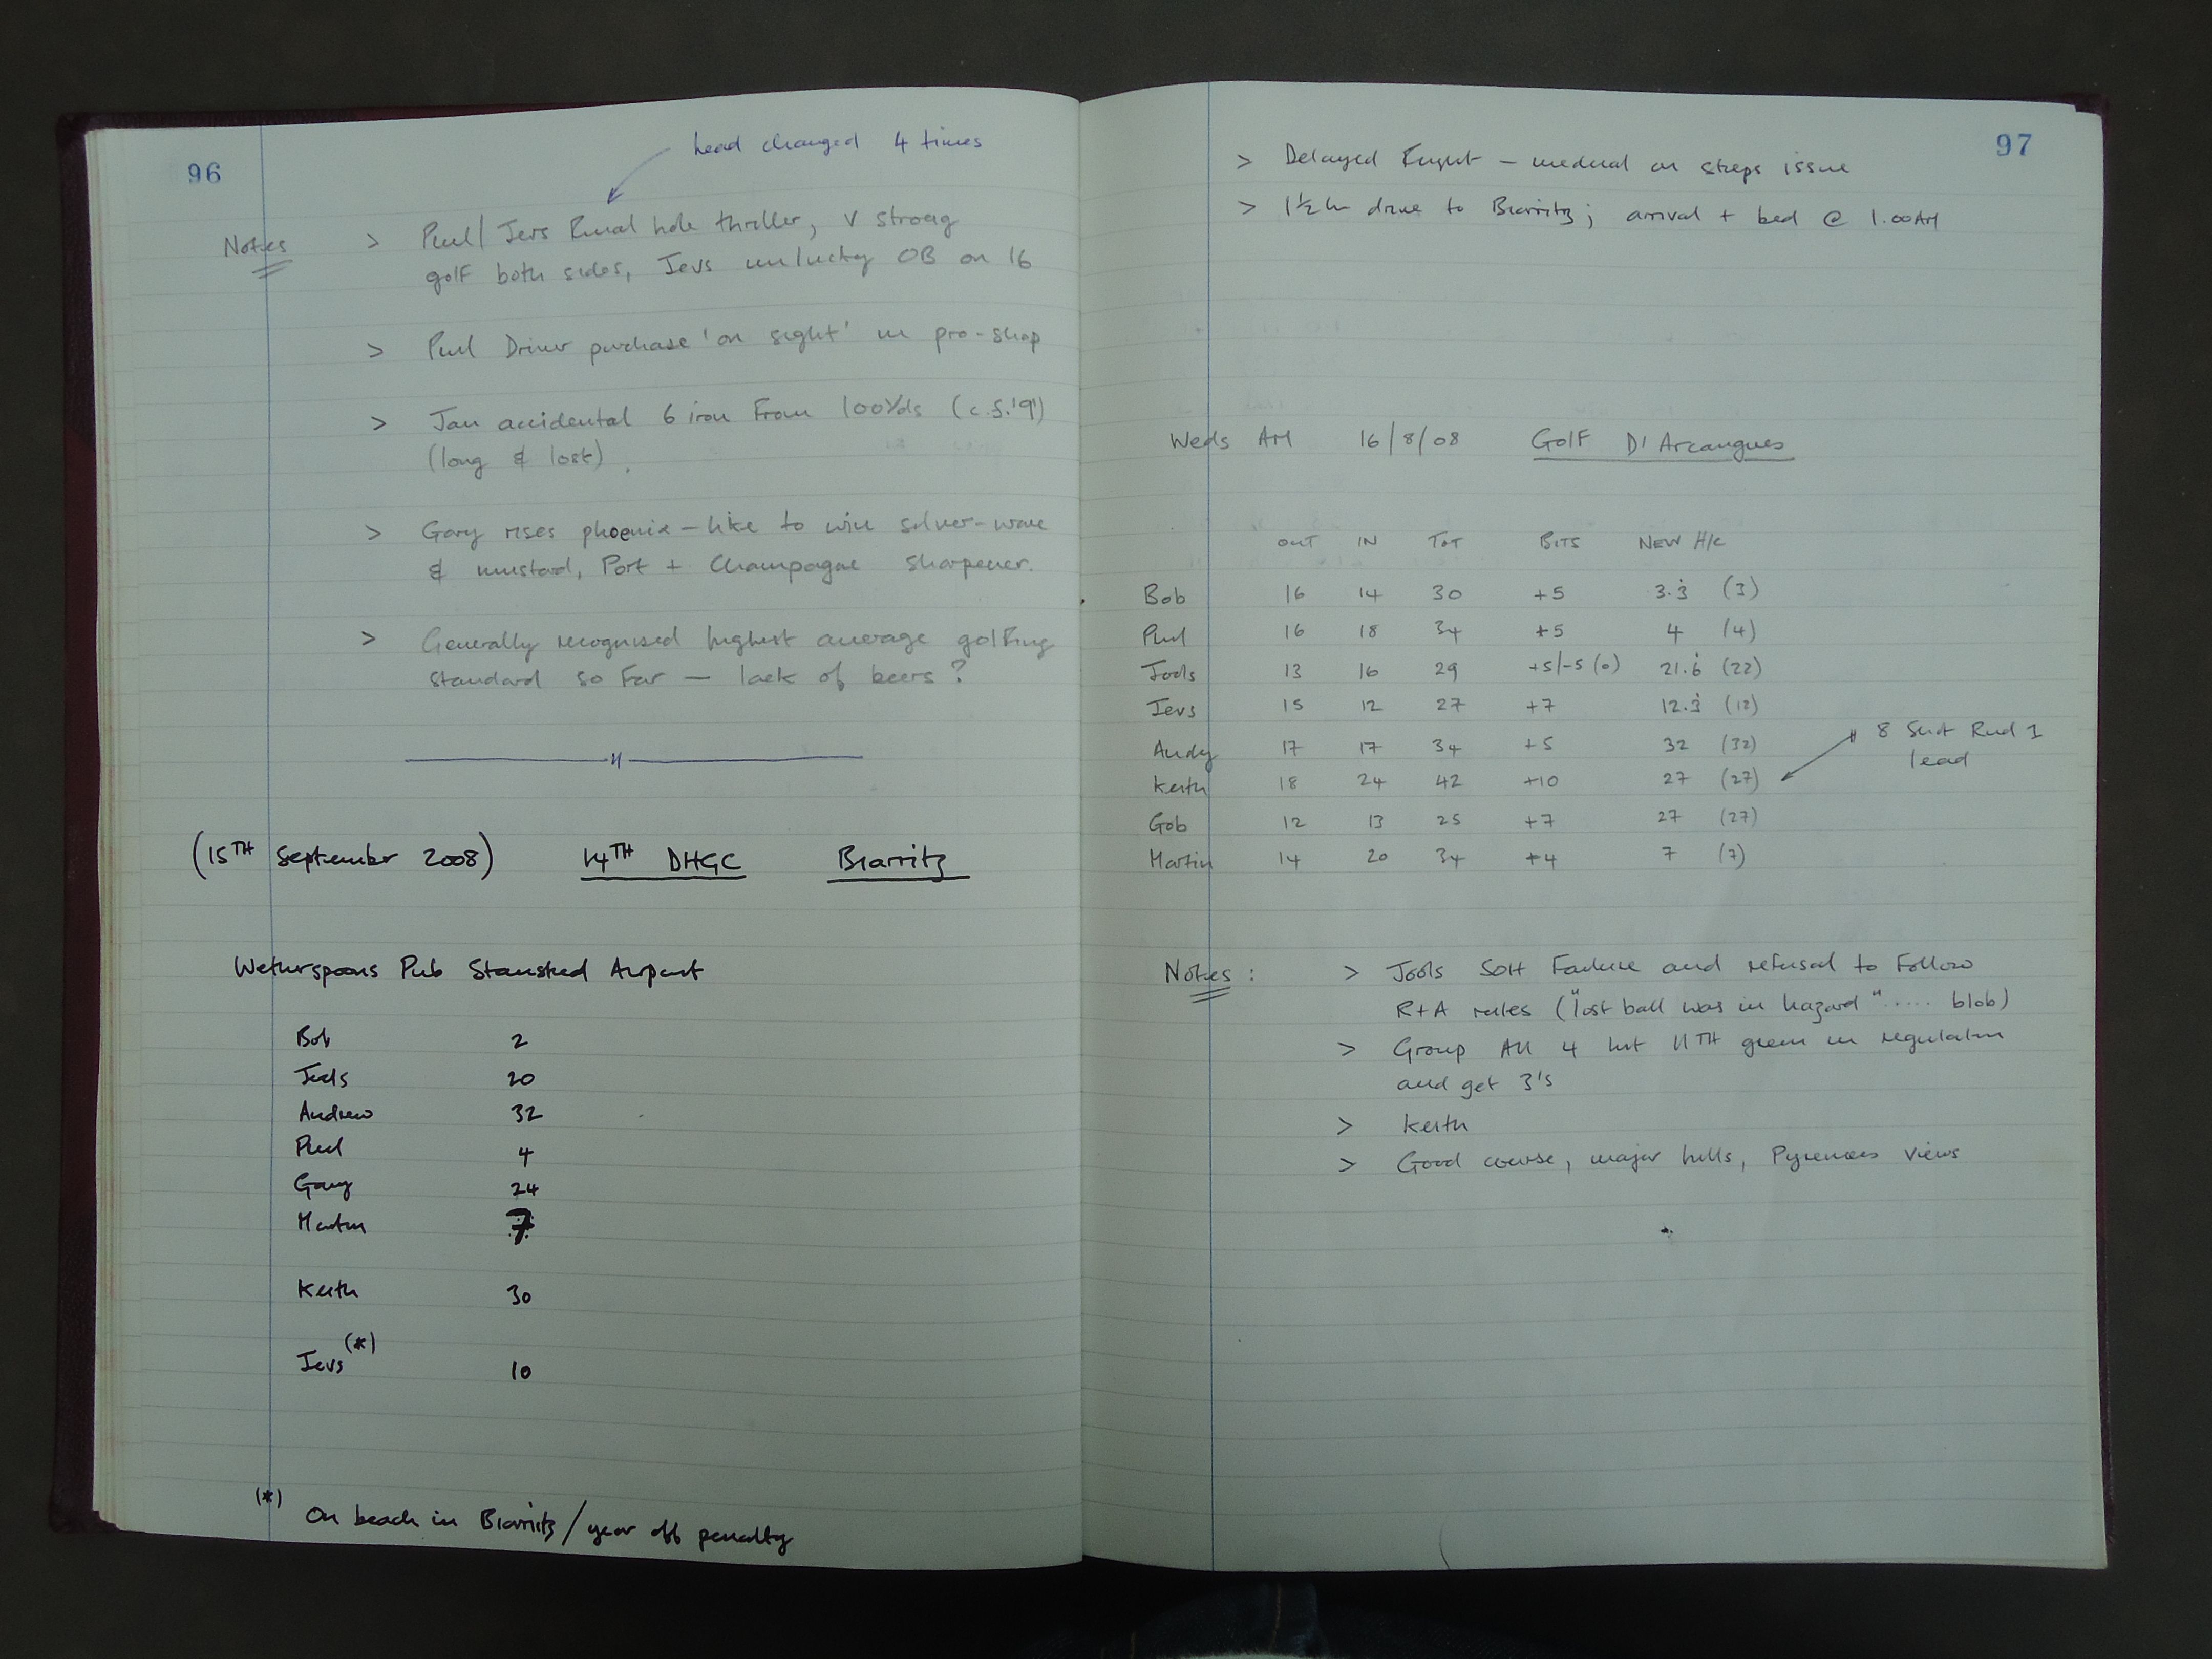 96
Lead changed 4 times
Notes > Paul/Jevs Final hole thriller, v strong
golf both sides, Jevs unlucky OB on 16
> Paul Driver purchase 'on sight' in pro-shop
> Jan accidental 6 iron From 100Yds (c.f. '9')
(long & lost).
> Gary rises phoenix-like to win silver-ware
& mustard, Port + Champagne sharpener.
> Generally recognised highest average golfing
standard so far — lack of beers?
(15TH September 2008) 14TH DHGC Biarritz
Wetherspoons Pub Stansted Airport
Bob 2
Jools 20
Andrew 32
Paul 4
Gary 24
Martin 7
Keith 30
Jevs (*) 10
(*) On beach in Biarritz/year off penalty
97
> Delayed Flight — medical on steps issue
> 1½ hr drive to Biarritz; arrival + bed @ 1.00AM
Weds AM 16/8/08 Golf D'Arcangues
OUT IN TOT BITS NEW H/C
Bob 16 14 30 +5 3.3̇ (3)
Paul 16 18 34 +5 4 (4)
Jools 13 16 29 +5/-5 (0) 21.6̇ (22)
Jevs 15 12 27 +7 12.3̇ (12)
Andy 17 17 34 +5 32 (32)
8 Shot Rnd 1
lead
Keith 18 24 42 +10 27 (27)
Gob 12 13 25 +7 27 (27)
Martin 14 20 34 +4 7 (7)
Notes : > Jools SOH Failure and refusal to follow
R+A rules ("lost ball was in hazard"..... blob)
> Group All 4 hit 11TH green in regulation
and get 3's
> Keith
> Good course, major hills, Pyrenees views